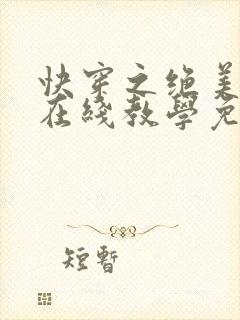 快穿之绝美
在线教學免
短暫